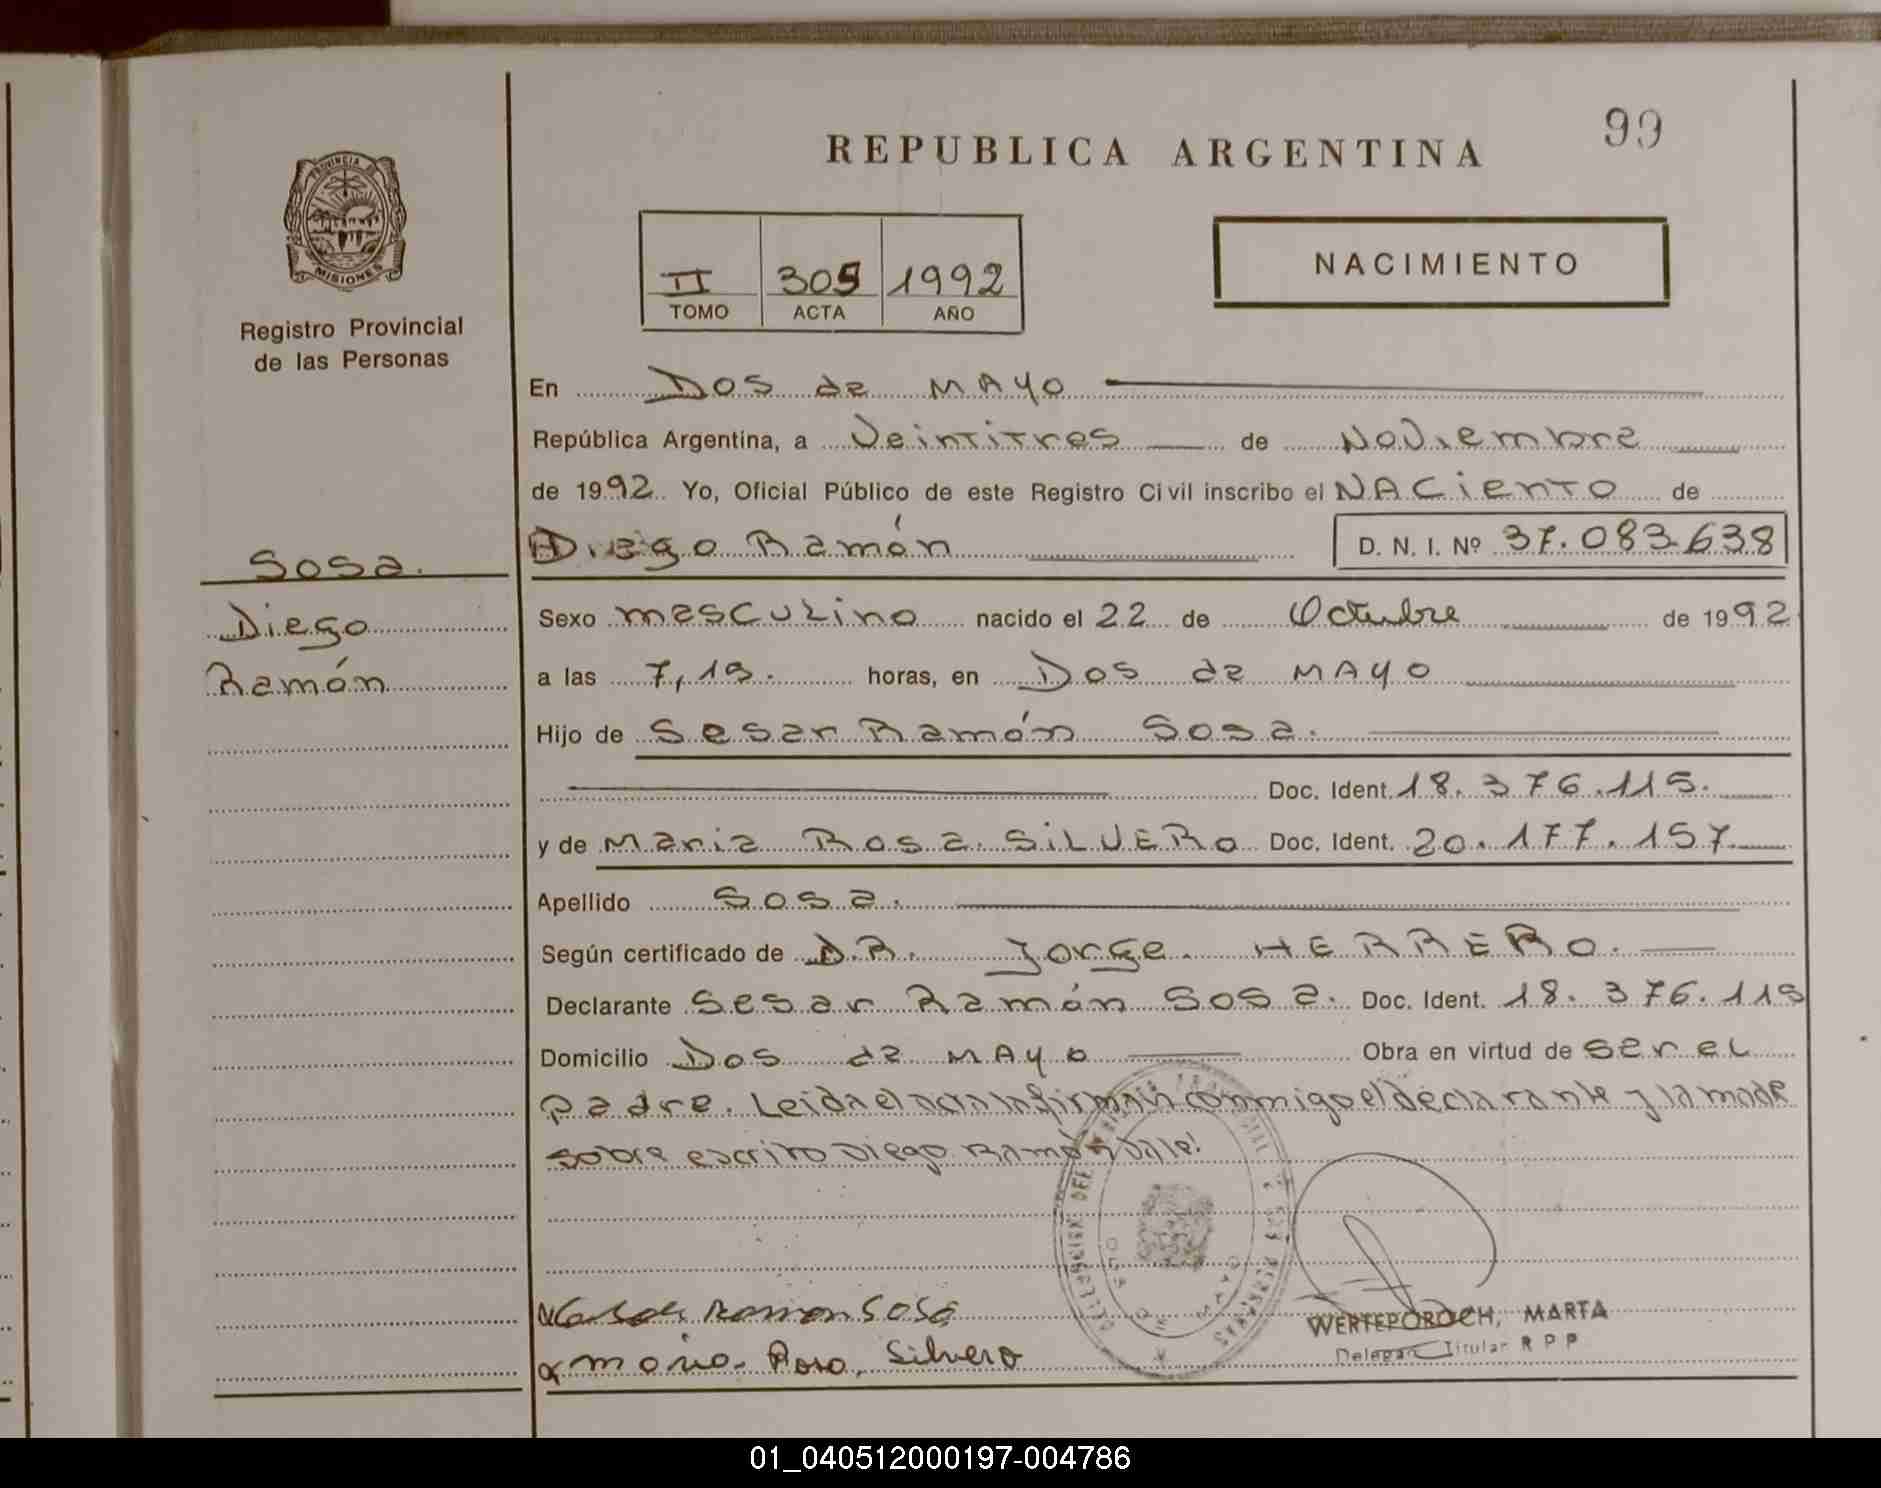 99
REPUBLICA ARGENTINA
PROVINCIA DE
MISIONES
Registro Provincial
de las Personas
II 305 1992
TOMO ACTA AÑO
NACIMIENTO
En Dos de MAYO
República Argentina, a Veintitres de Noviembre
de 1992 Yo, Oficial Público de este Registro Civil inscribo el NACiento de
Diego Ramón D. N. I. Nº 37.083.638
Sosa.
Diego
Ramón
Sexo masculino nacido el 22 de Octubre de 1992
a las 7,15. horas, en Dos de MAYO
Hijo de Sesar Ramón Sosa.
Doc. Ident. 18.376.115.
y de Maria Rosa SiLVERo Doc. Ident. 20.177.157
Apellido Sosa.
Según certificado de D.R. Jorge. HERRERO.
Declarante Sesar Ramón Sosa. Doc. Ident. 18.376.115
Domicilio Dos de MAYO Obra en virtud de ser el
padre. Leida el acta la firman conmigo el declarante y la madre
sobre escrito Diego Ramón vale!
Ramon Sosa
Maria Rosa Silvero
WERTEPOROCH, MARTA
Titular R P P
01_040512000197-004786